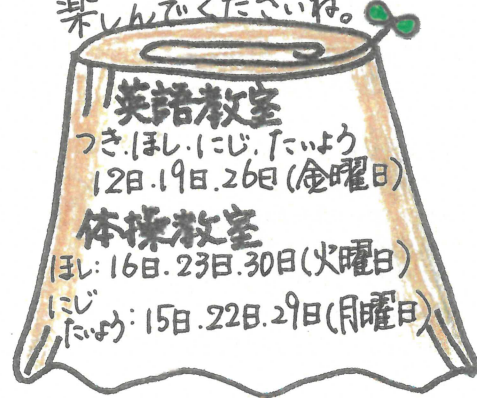 楽しんでくださいね。
英語教室
つき.ほし.にじ.たいよう
12日.19日.26日(金曜日)
体操教室
ほし:16日.23日.30日(火曜日)
にじ
たいよう:15日.22日.29日(月曜日)